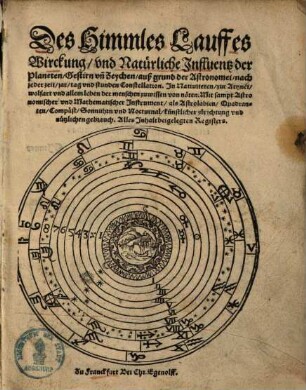 Des Himmles Lauffes
Wirckung / vnd Natürliche Influentz der
Planeten / Gestirn vñ Zeychen / auß grund der Astronomei / nach
jeder zeit / jar / tag vnd stunden Constellation. In Natiuiteten / zur Artznei /
wolfart vnd allem leben der menschen zuwissen von nöten. Mit sampt Astro
nomischer vnd Mathematischer Instrument / als Astrolabien / Quadran-
ten / Compāst / Sonnuhrn vnd Nocturnal / künstlicher zůrichtung vnd
nützlichem gebrauch. Alles Inhalt beigelegten Registers.
8 7 6 5 4 3 1
Zu Franckfort Bei Chr. Egenolff.